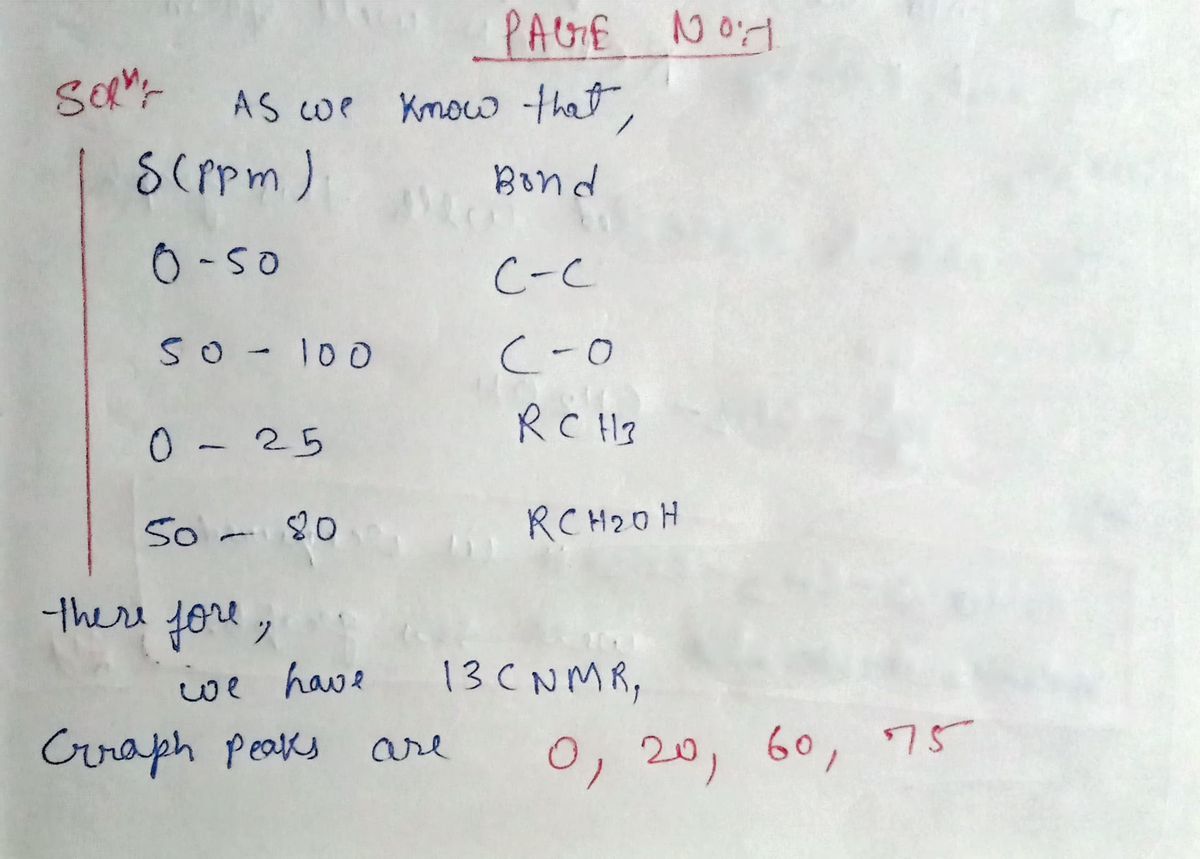 PAGE NO:-1
Solⁿ:- AS we know that,
δ(ppm) Bond
0-50 C-C
50 - 100 C-O
0 - 25 RCH3
50 - 80 RCH2OH
there fore,
we have 13 C NMR,
Graph peaks are 0, 20, 60, 75